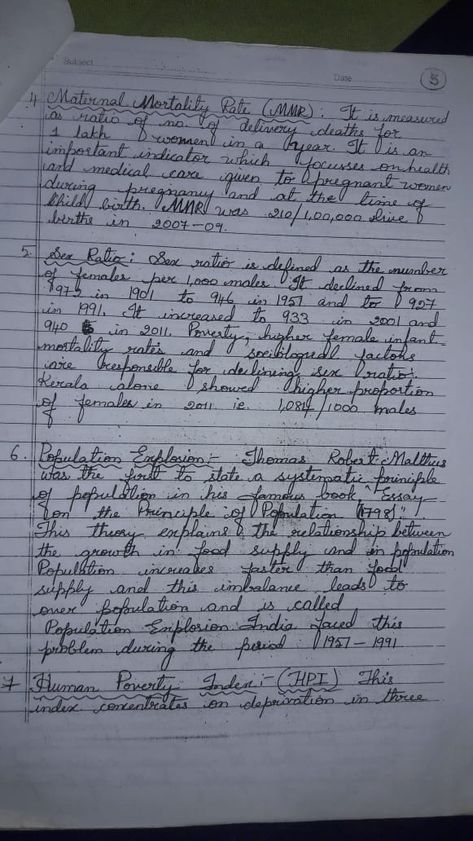 Subject
Date
5
4 Maternal Mortality Rate (MMR): It is measured
as ratio of no. of delivery deaths for
1 lakh women in a year. It is an
important indicator which focusses on health
and medical care given to pregnant women
during pregnancy and at the time of
Child birth. MMR was 210/1,00,000 live
births in 2007-09.
5. Sex Ratio: Sex ratio is defined as the number
of females per 1,000 males. It declined from
972 in 1901 to 946 in 1951 and to 927
in 1991. It increased to 933 in 2001 and
940 in 2011. Poverty, higher female infant
mortality rates and sociological factors
are responsible for declining sex ratio.
Kerala alone showed higher proportion
of females in 2011 ie. 1,084/1000 males
6. Population Explosion:- Thomas Robert Malthus
was the first to state a systematic principle
of population in his famous book "Essay
on the Principle of Population (1798)".
This theory explains the relationship between
the growth in food supply and in population
Population increases faster than food
supply and this imbalance leads to
over population and is called
Population Explosion India faced this
problem during the period 1951-1991
7 Human Poverty Index:- (HPI) This
index concentrates on deprivation in three